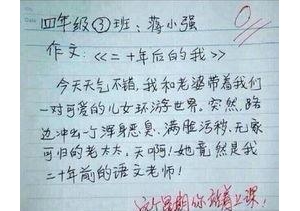 四年级③班:蒋小强
0
作文:《二十年后的我》
今天天气不错,我和老婆带着我们
一对可爱的儿女环游世界。突然,路
边冲出一个浑身恶臭、满脸污秽、无家
可归的老太太,天啊!她竟然是我
二十年前的语文老师!
这个星期你站着上课!